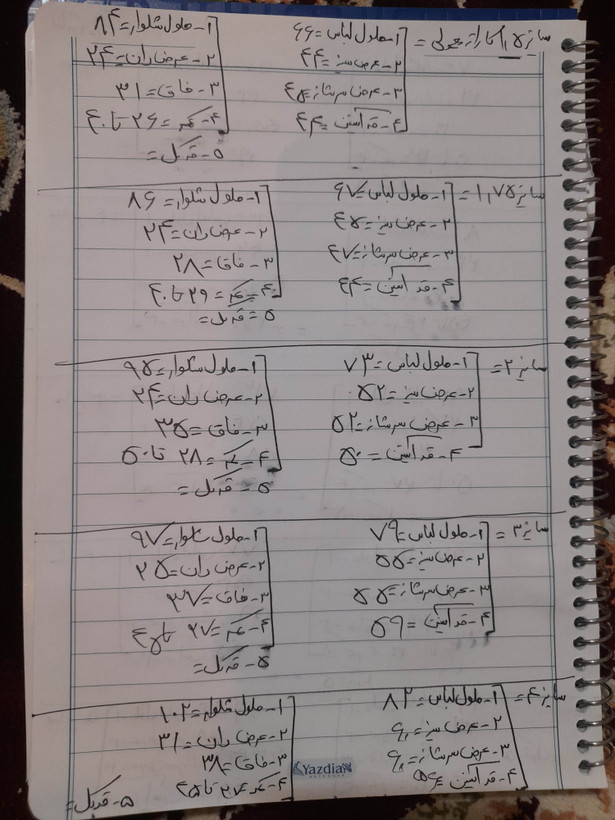 سایز ۱/۵ کاراته معمولی =
۱- طول لباس = ۶۶
۲- عرض سینه = ۴۴
۳- عرض سرشانه = ۴۵
۴- قد آستین = ۴۴
۱- طول شلوار = ۸۴
۲- عرض ران = ۲۴
۳- فاق = ۳۱
۴- کمر = ۲۶ تا ۴۰
۵- قد کل =
سایز ۱,۷۵ =
۱- طول لباس = ۶۷
۲- عرض سینه = ۴۵
۳- عرض سرشانه = ۴۷
۴- قد آستین = ۴۴
۱- طول شلوار = ۸۶
۲- عرض ران = ۲۴
۳- فاق = ۲۸
۴- کمر = ۲۹ تا ۴۰
۵- قد کل =
سایز ۲ =
۱- طول لباس = ۷۳
۲- عرض سینه = ۵۲
۳- عرض سرشانه = ۵۲
۴- قد آستین = ۵۰
۱- طول شلوار = ۹۵
۲- عرض ران = ۲۴
۳- فاق = ۳۵
۴- کمر = ۲۸ تا ۵۰
۵- قد کل =
سایز ۳ =
۱- طول لباس = ۷۹
۲- عرض سینه = ۵۵
۳- عرض سرشانه = ۵۵
۴- قد آستین = ۵۹
۱- طول شلوار = ۹۷
۲- عرض ران = ۲۵
۳- فاق = ۳۷
۴- کمر = ۲۷ تا ۴۵
۵- قد کل =
سایز ۴ =
۱- طول لباس = ۸۲
۲- عرض سینه = ۶۰
۳- عرض سرشانه = ۶۰
۴- قد آستین = ۵۶
۱- طول شلوار = ۱۰۲
۲- عرض ران = ۳۱
۳- فاق = ۳۸
۴- کمر = ۲۷ تا ۴۵
۵- قد کل =
Yazdia